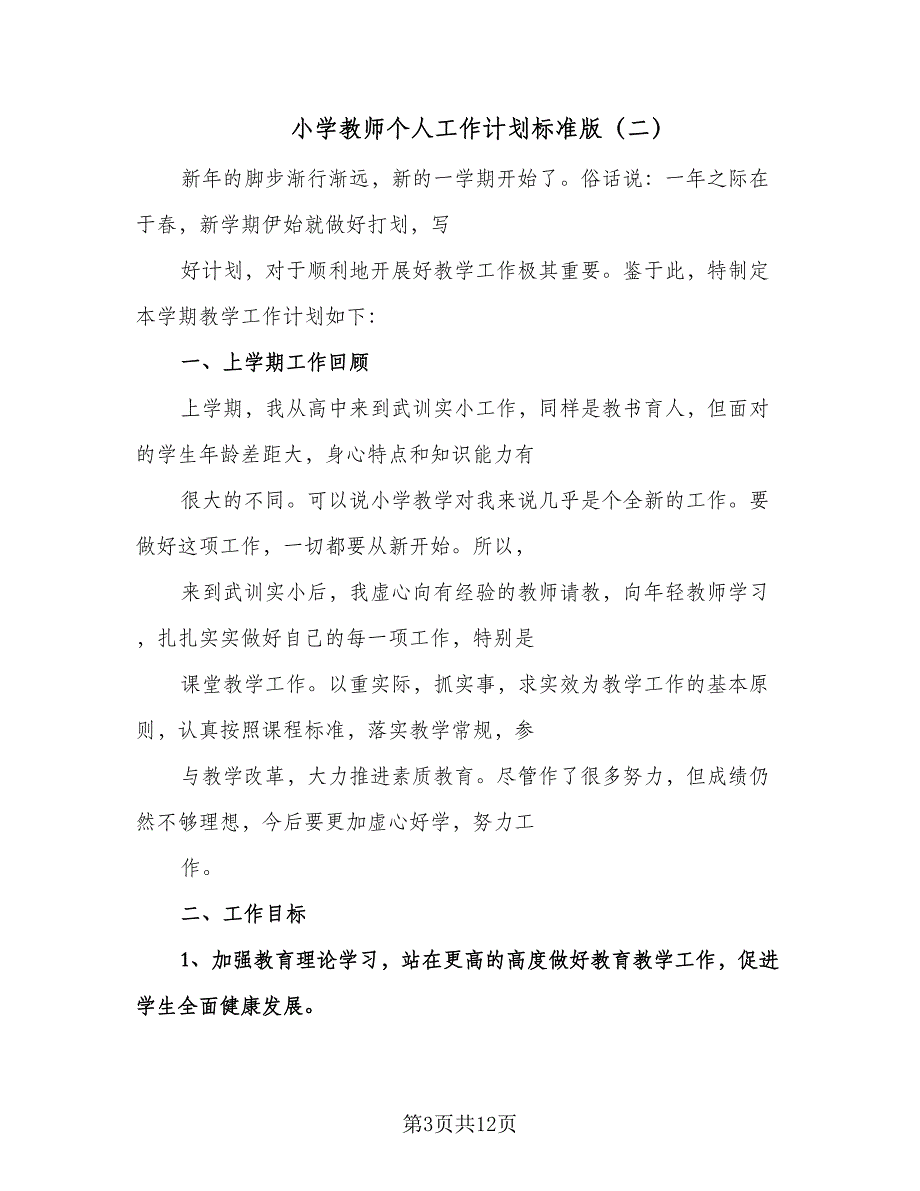 小学教师个人工作计划标准版（二）
新年的脚步渐行渐远，新的一学期开始了。俗话说：一年之际在
于春，新学期伊始就做好打划，写
好计划，对于顺利地开展好教学工作极其重要。鉴于此，特制定
本学期教学工作计划如下：
一、上学期工作回顾
上学期，我从高中来到武训实小工作，同样是教书育人，但面对
的学生年龄差距大，身心特点和知识能力有
很大的不同。可以说小学教学对我来说几乎是个全新的工作。要
做好这项工作，一切都要从新开始。所以，
来到武训实小后，我虚心向有经验的教师请教，向年轻教师学习
，扎扎实实做好自己的每一项工作，特别是
课堂教学工作。以重实际，抓实事，求实效为教学工作的基本原
则，认真按照课程标准，落实教学常规，参
与教学改革，大力推进素质教育。尽管作了很多努力，但成绩仍
然不够理想，今后要更加虚心好学，努力工
作。
二、工作目标
1、加强教育理论学习，站在更高的高度做好教育教学工作，促进
学生全面健康发展。
第3页共12页